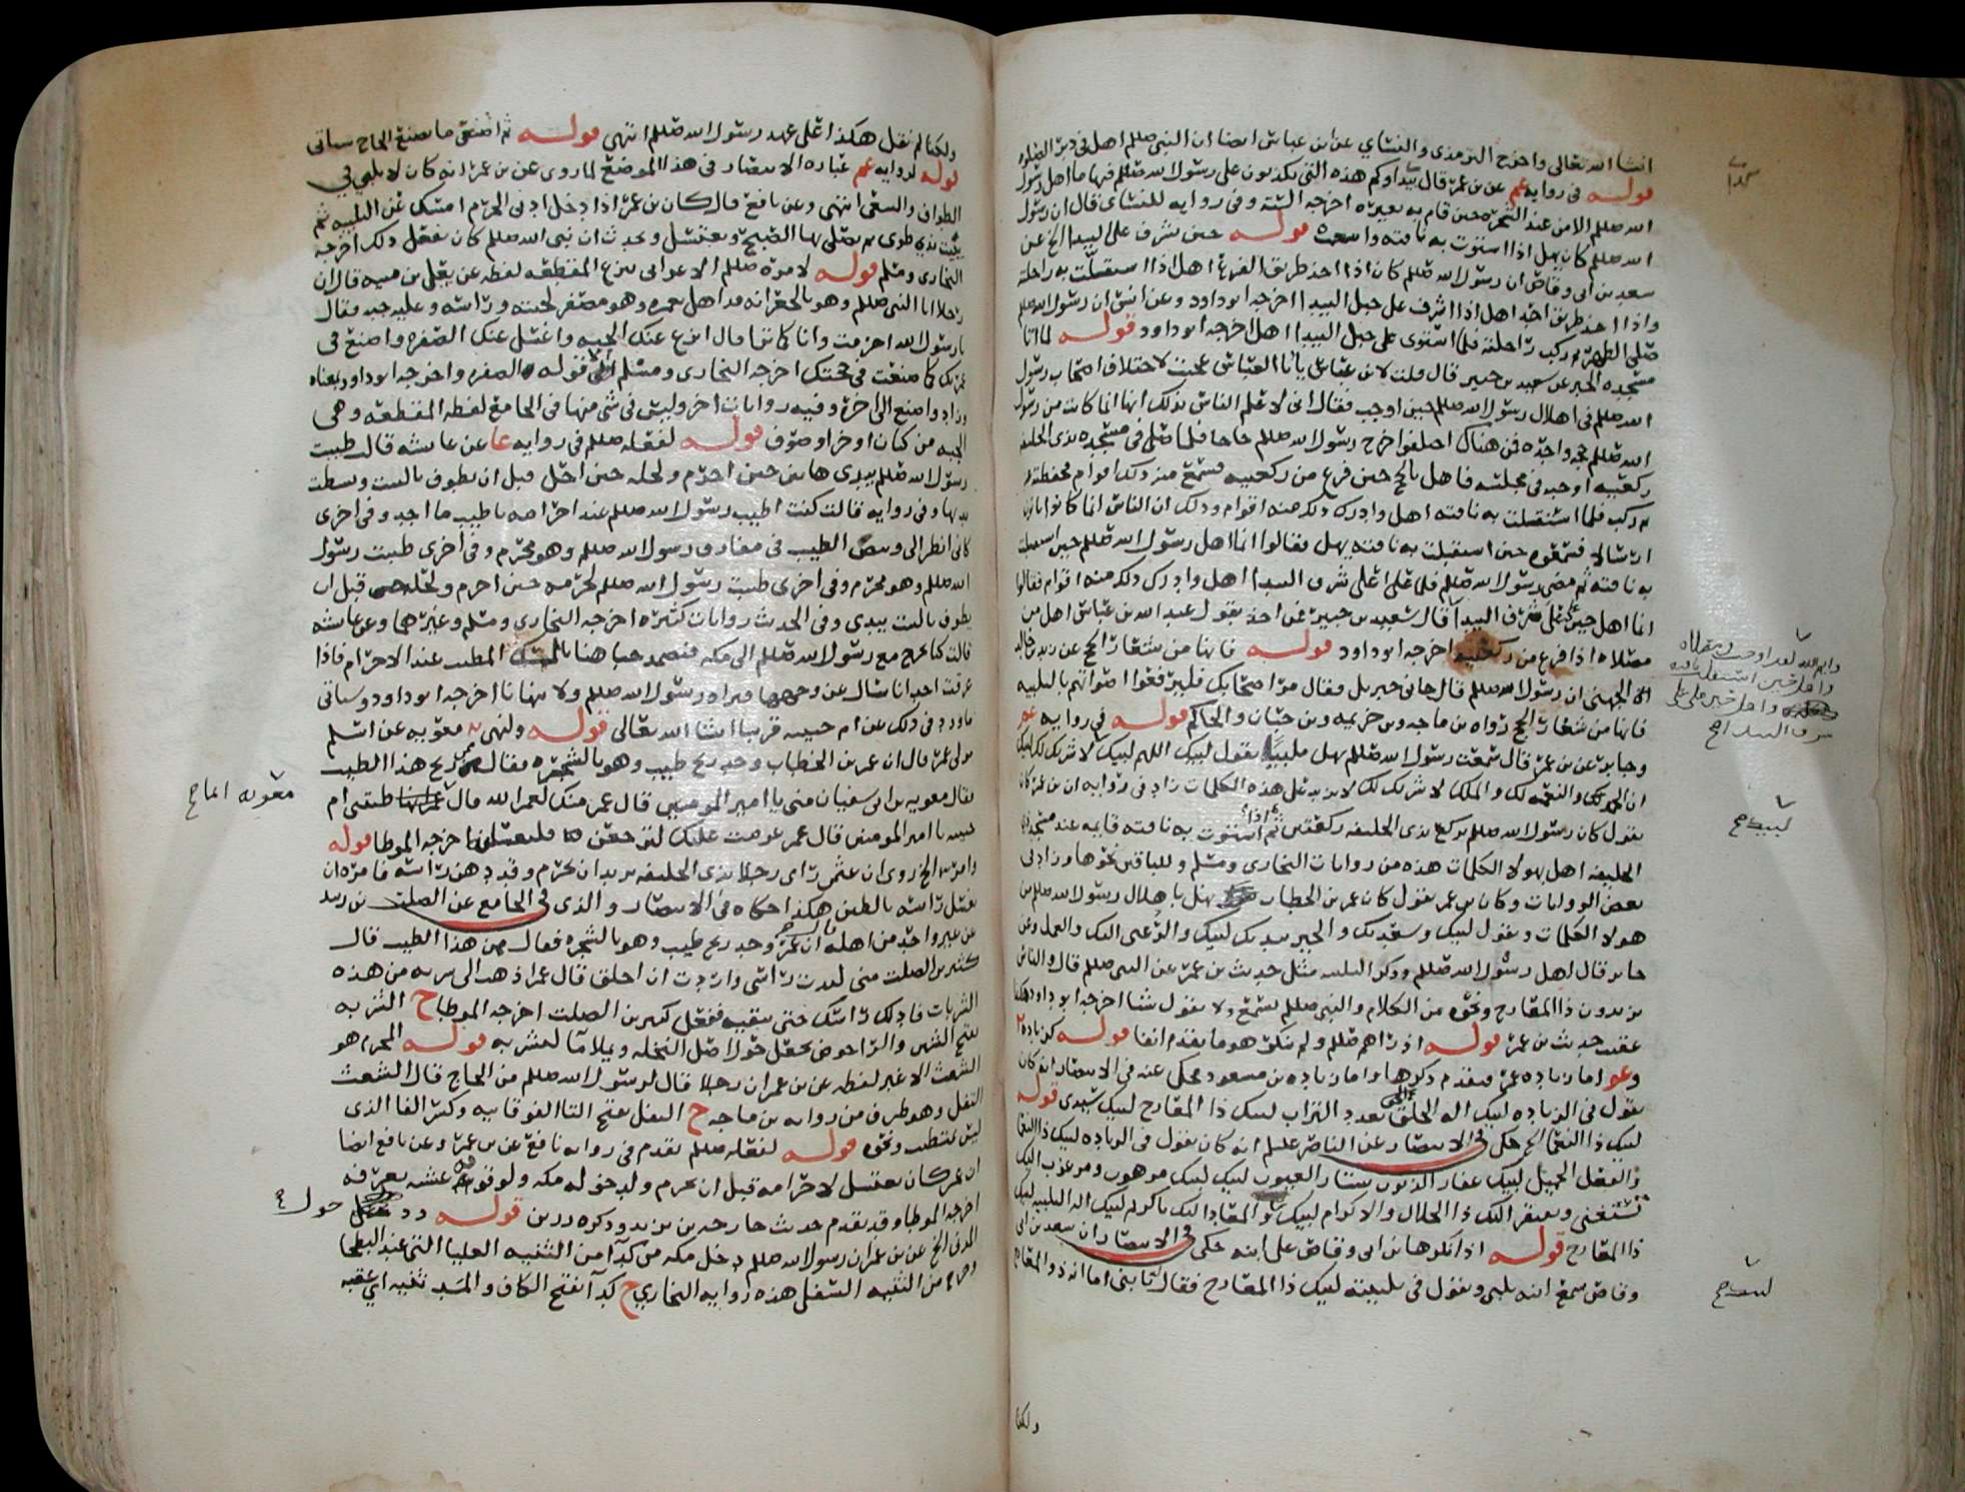 انشا الله تعالى واخرج الترمذي والنسايي عن ابن عباس ايضا ان النبي صللم اهل في دبر الصلوه
قوله في روايه عم عن بن عمر قال بيداوكم هذه التي تكذبون على رسول الله صللم فيها ما اهل رسول
الله صللم الا من عند الشجره حين قام به بعيره اخرجه السته وفي روايه للنساي قال ان رسول
الله صللم كان يهل اذا استوت به ناقته واسعه قوله حين شرف على البيدا الخ عن
سعد بن ابي وقاص ان رسول الله صللم كان اذا اخذ طريق الفرع اهل اذا استقلت به راحلته
واذا اخذ طريق احد اهل اذا اشرف على جبل البيدا اخرجه ابو داود وعن انس ان رسول الله صللم
صلى الظهر ثم ركب راحلته فلما استوى على جبل البيدا اهل اخرجه ابو داود قوله لما اتا
مسجده الخبر عن سعيد بن جبير قال قلت لابن عباس يا ابا العباس عجبت لاختلاف اصحاب رسول
الله صللم في اهلال رسول الله صللم حين اوجب فقال اني لاعلم الناس بذلك انها انما كانت من رسول
الله صللم حجه واحده فمن هناك اختلفوا خرج رسول الله صللم حاجا فلما صلى في مسجده بذي الحليفه
ركعتيه اوجبه في مجلسه فاهل بالحج حين فرغ من ركعتيه فسمع منه ذلك اقوام فحفظته
ثم ركب فلما استقلت به ناقته اهل وادرك ذلك منه اقوام وذلك ان الناس انما كانوا ياتون
ارسالا فسمعوه حين استقلت به ناقته يهل فقالوا انما اهل رسول الله صللم حين استقلت
به ناقته ثم مضى رسول الله صللم فلما علا اعلى شرف البيدا اهل وادرك ذلك منه اقوام فقالوا
انما اهل حين علا على شرف البيدا قال سعيد بن جبير فمن اخذ بقول عبد الله بن عباس اهل من
مصلاه اذا فرغ من ركعتيه اخرجه ابو داود قوله فانها من شعار الحج عن زيد بن خالد
الجهني ان رسول الله صللم قال جاني جبريل فقال مر اصحابك فليرفعوا اصواتهم بالتلبيه
فانها من شعار الحج رواه بن ماجه وبن خزيمه وبن حبان والحاكم قوله في روايه عم
وجابر عن بن عمر قال سمعت رسول الله صللم يهل ملبيا يقول لبيك اللهم لبيك لا شريك لك لبيك
ان الحمد لك والنعمه لك والملك لا شريك لك لا يزيد على هذه الكلمات زاد في روايه ان بن عمر كان
يقول كان رسول الله صللم يركع بذي الحليفه ركعتين ثم اذا استوت به ناقته قايمه عند مسجد
الحليفه اهل بهولا الكلمات هذه من روايات البخاري ومسلم وللباقين نحوها وزاد في
بعض الروايات وكان بن عمر يقول كان عمر بن الخطاب يهل باهلال رسول الله صللم من
هولا الكلمات ويقول لبيك وسعديك والخير بيديك لبيك والرغبى اليك والعمل وعن
جابر قال اهل رسول الله صللم وذكر التلبيه مثل حديث بن عمر عن النبي صللم قال والناس
يزيدون ذا المعارج ونحوه من الكلام والنبي صللم يسمع ولا يقول شيا اخرجه ابو داود هكذا
عقب حديث بن عمر قوله اذ راهم صللم ولم ينكر هو ما يقدم انفا قوله كزياده
وعو اما زياده عمر فتقدم ذكرها واما زياده بن مسعود فحكى عنه في الانتصار انه كان
يقول في الزياده لبيك اله الخلق الحق بعدد التراب لبيك ذا المعارج لبيك سيدي قوله
لبيك ذا النعما الخ حكى في الانتصار عن الناصر علسلم انه كان يقول في الزياده لبيك ذا النعما
والفضل الجميل لبيك غفار الذنوب ستار العيوب لبيك لبيك مرهوب ومرغوب اليك
تستغني ونفتقر اليك ذا الجلال والاكرام لبيك والمعاد اليك يا كريم لبيك اله التلبيه لبيك
ذا المعارج قوله اذ انكرها بن ابي وقاص على ابنه حكى في الانتصار ان سعد بن ابي
وقاص سمع ابنه يلبي ويقول في تلبيته لبيك ذا المعارج فقال يا بني اما انه ذو المعارج
ولكنا
ولكنا لم نقل هكذا على عهد رسول الله صللم انتهى قوله ثم اصنعي ما يصنع الحاج سياتي
قوله لروايه عم عباره الانتصار في هذا الموضع لما روى عن بن عمر انه كان لا يلبي في
الطواف والسعي انتهى وعن نافع قال كان بن عمر اذا دخل ادنى الحرم امسك عن التلبيه ثم
يبيت بذي طوى ثم يصلي بها الصبح ويغتسل ويحدث ان نبي الله صللم كان يفعل ذلك اخرجه
البخاري ومسلم قوله لامره صللم الاعرابي بنزع المقطعه لفظه عن يعلى بن منيه قال ان
رجلا اتا النبي صللم وهو بالجعرانه قد اهل بعمره وهو مصفر لحيته وراسه وعليه جبه فقال
يا رسول الله احرمت وانا كما ترا قال انزع عنك الجبه واغسل عنك الصفره واصنع في
عمرتك كما صنعت في حجتك اخرجه البخاري ومسلم الى قوله الصفره واخرجه ابو داود بمعناه
وزاد واصنع الى اخره وفيه روايات اخر وليس في شي منها في الجامع لفظه المقطعه وهي
الجبه من كتان او خز او صوف قوله لفعله صللم في روايه عا عن عايشه قالت طيبت
رسول الله صللم بيدي هاتين حين احرم ولحله حين احل قبل ان يطوف بالبيت وبسطت
يديها وفي روايه قالت كنت اطيب رسول الله صللم عند احرامه باطيب ما اجد وفي اخرى
كاني انظر الى وبيص الطيب في مفارق رسول الله صللم وهو محرم وفي اخرى طيبت رسول
الله صللم وهو محرم وفي اخرى طيبت رسول الله صللم لحرمه حين احرم ولحله قبل ان
يطوف بالبيت بيدي وفي الحديث روايات كثيره اخرجه البخاري ومسلم وغيرهما وعن عايشه
قالت كنا نخرج مع رسول الله صللم الى مكه فنضمد جباهنا بالمسك المطيب عند الاحرام فاذا
عرقت احدانا سال عن وجهها فيراه رسول الله صللم ولا ينهانا اخرجه ابو داود وسياتي
ما ورد في ذلك عن ام حبيبه قريبا انشا الله تعالى قوله ولنهي معويه عن اسلم
مولى عمر قال ان عمر بن الخطاب وجد ريح طيب وهو بالشجره فقال ممن ريح هذا الطيب
فقال معويه بن ابي سفيان مني يا امير المومنين قال عمر منك لعمر الله قال طيبتني ام
حبيبه يا امير المومنين قال عمر عزمت عليك لترجعن فلتغسلنه اخرجه الموطا قوله
وامر الخ روى ان عثمن راى رجلا بذي الحليفه يريد ان يحرم وقد دهن راسه فامره ان
يغسل راسه بالطين هكذا حكاه في الانتصار والذي في الجامع عن الصلت بن زبيد
عن غير واحد من اهله ان عمر وجد ريح طيب وهو بالشجره فقال ممن هذا الطيب قال
كثير بن الصلت مني لبدت راسي واردت ان احلق قال عمر اذهب الى شربه من هذه
الشربات فادلك راسك حتى تنقيه ففعل كثير بن الصلت اخرجه الموطا ح الشربه
بفتح الشين والراء حوض يجعل حول اصل النخله ويملا ما لتشربه قوله المحرم هو
الشعث الاغبر لفظه عن بن عمر ان رجلا قال لرسول الله صللم من الحاج قال الشعث
التفل وهو طرف من روايه بن ماجه ح التفل بفتح التا الفوقانيه وكسر الفا الذي
ليس بمتطيب ونحوه قوله لفعله صللم يقدم في روايه نافع عن بن عمر وعن نافع ايضا
ان عمر كان يغتسل لاحرامه قبل ان يحرم ولدخوله مكه ولوقوفه عشيه بعرفه
اخرجه الموطا وقد تقدم حديث خارجه بن زيد وذكره رزين قوله حول
المدني الخ عن بن عمر ان رسول الله صللم دخل مكه من كدآ من الثنيه العليا التي عند البطحا
وخرج من الثنيه السفلى هذه روايه البخاري ح كدآ بفتح الكاف والمد ثنيه اي عقبه